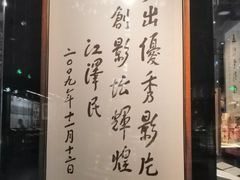 出優秀影片
創影坛輝煌
江澤民
二〇〇九年十二月十二日